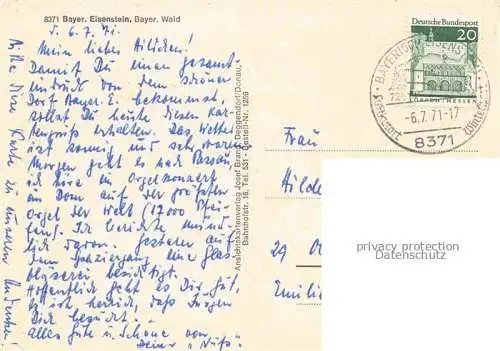 8371 Bayer. Eisenstein, Bayer. Wald
d. 6.7.71.
Mein liebes Hildchen!
Damit Du einen gesamt-
eindruck von dem schönen
Dorf Bayer. E. bekommst,
sollst Du heute diesen Kar-
tengruß erhalten. Das Wetter
ist sonnig und sehr warm
Morgen geht es nach Passau
ich höre ein Orgelkonzert
im Dom auf der größten
Orgel der Welt (17000 Pfei-
fen). Ich berichte münd-
lich davon. Gestern auf
dem Spaziergang eine Glas-
bläserei besichtigt.
Hoffentlich geht es Dir gut,
es ist herrlich, daß Jürgen
Dich besucht.
Alles Gute u. Schöne von
Deiner "Nufs"
Bitte diese Karte zu unseren Andenken!
Ansichtskartenverlag Josef Brandl, Deggendorf/Donau,
Bahnhofstr. 16, Tel. 531 - Bestell-Nr. 1259
Deutsche Bundespost
20
LORSCH / HESSEN
BAYERISCH EISENSTEIN
-6.7.71-17
8371
Luftkurort
Winter
Frau
Hilde
29 O
Emili
privacy protection
Datenschutz